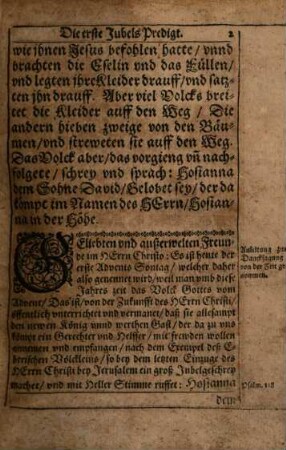 Die erste Jubels Predigt. 2
wie jhnen Jesus befohlen hatte/ vnnd
brachten die Eselin vnd das Füllen/
vnd legten jhre Kleider drauff/ vnd satz-
ten jhn drauff. Aber viel Volcks brei-
tet die Kleider auff den Weg / Die
andern hieben zweige von den Bäu-
men/ vnd streweten sie auff den Weg.
Das Volck aber/ das vorgieng vñ nach-
folgete/ schrey vnd sprach: Hosianna
dem Sohne David/ Gelobet sey/ der da
kömpt im Namen des HErrn/ Hosian-
na in der Höhe.
GEliebten vnd außerwelten Freun-
de im HErrn Christo: Es ist heute der
erste Advents Sontag/ welcher daher
also genennet wird/ weil man vmb diese
Jahres zeit das Volck Gottes vom
Advent/ Das ist/ von der Zukunfft des HErrn Christi/
öffentlich vnterrichtet vnd vermanet/ daß sie allesampt
den newen König vnnd werthen Gast/ der da zu vns
kömpt ein Gerechter vnd Helffer/ mit frewden wollen
annemen vnd empfangen/ nach dem Exempel deß E-
breischen Völckleins/ so bey dem letzten Einzuge des
HErrn Christi bey Jerusalem ein groß Jubelgeschrey
machet/ vnd mit heller Stimme ruffet: Hosianna
dem
Anleitung
Dancksagung
von der Zeit
nommen.
Psalm. 118